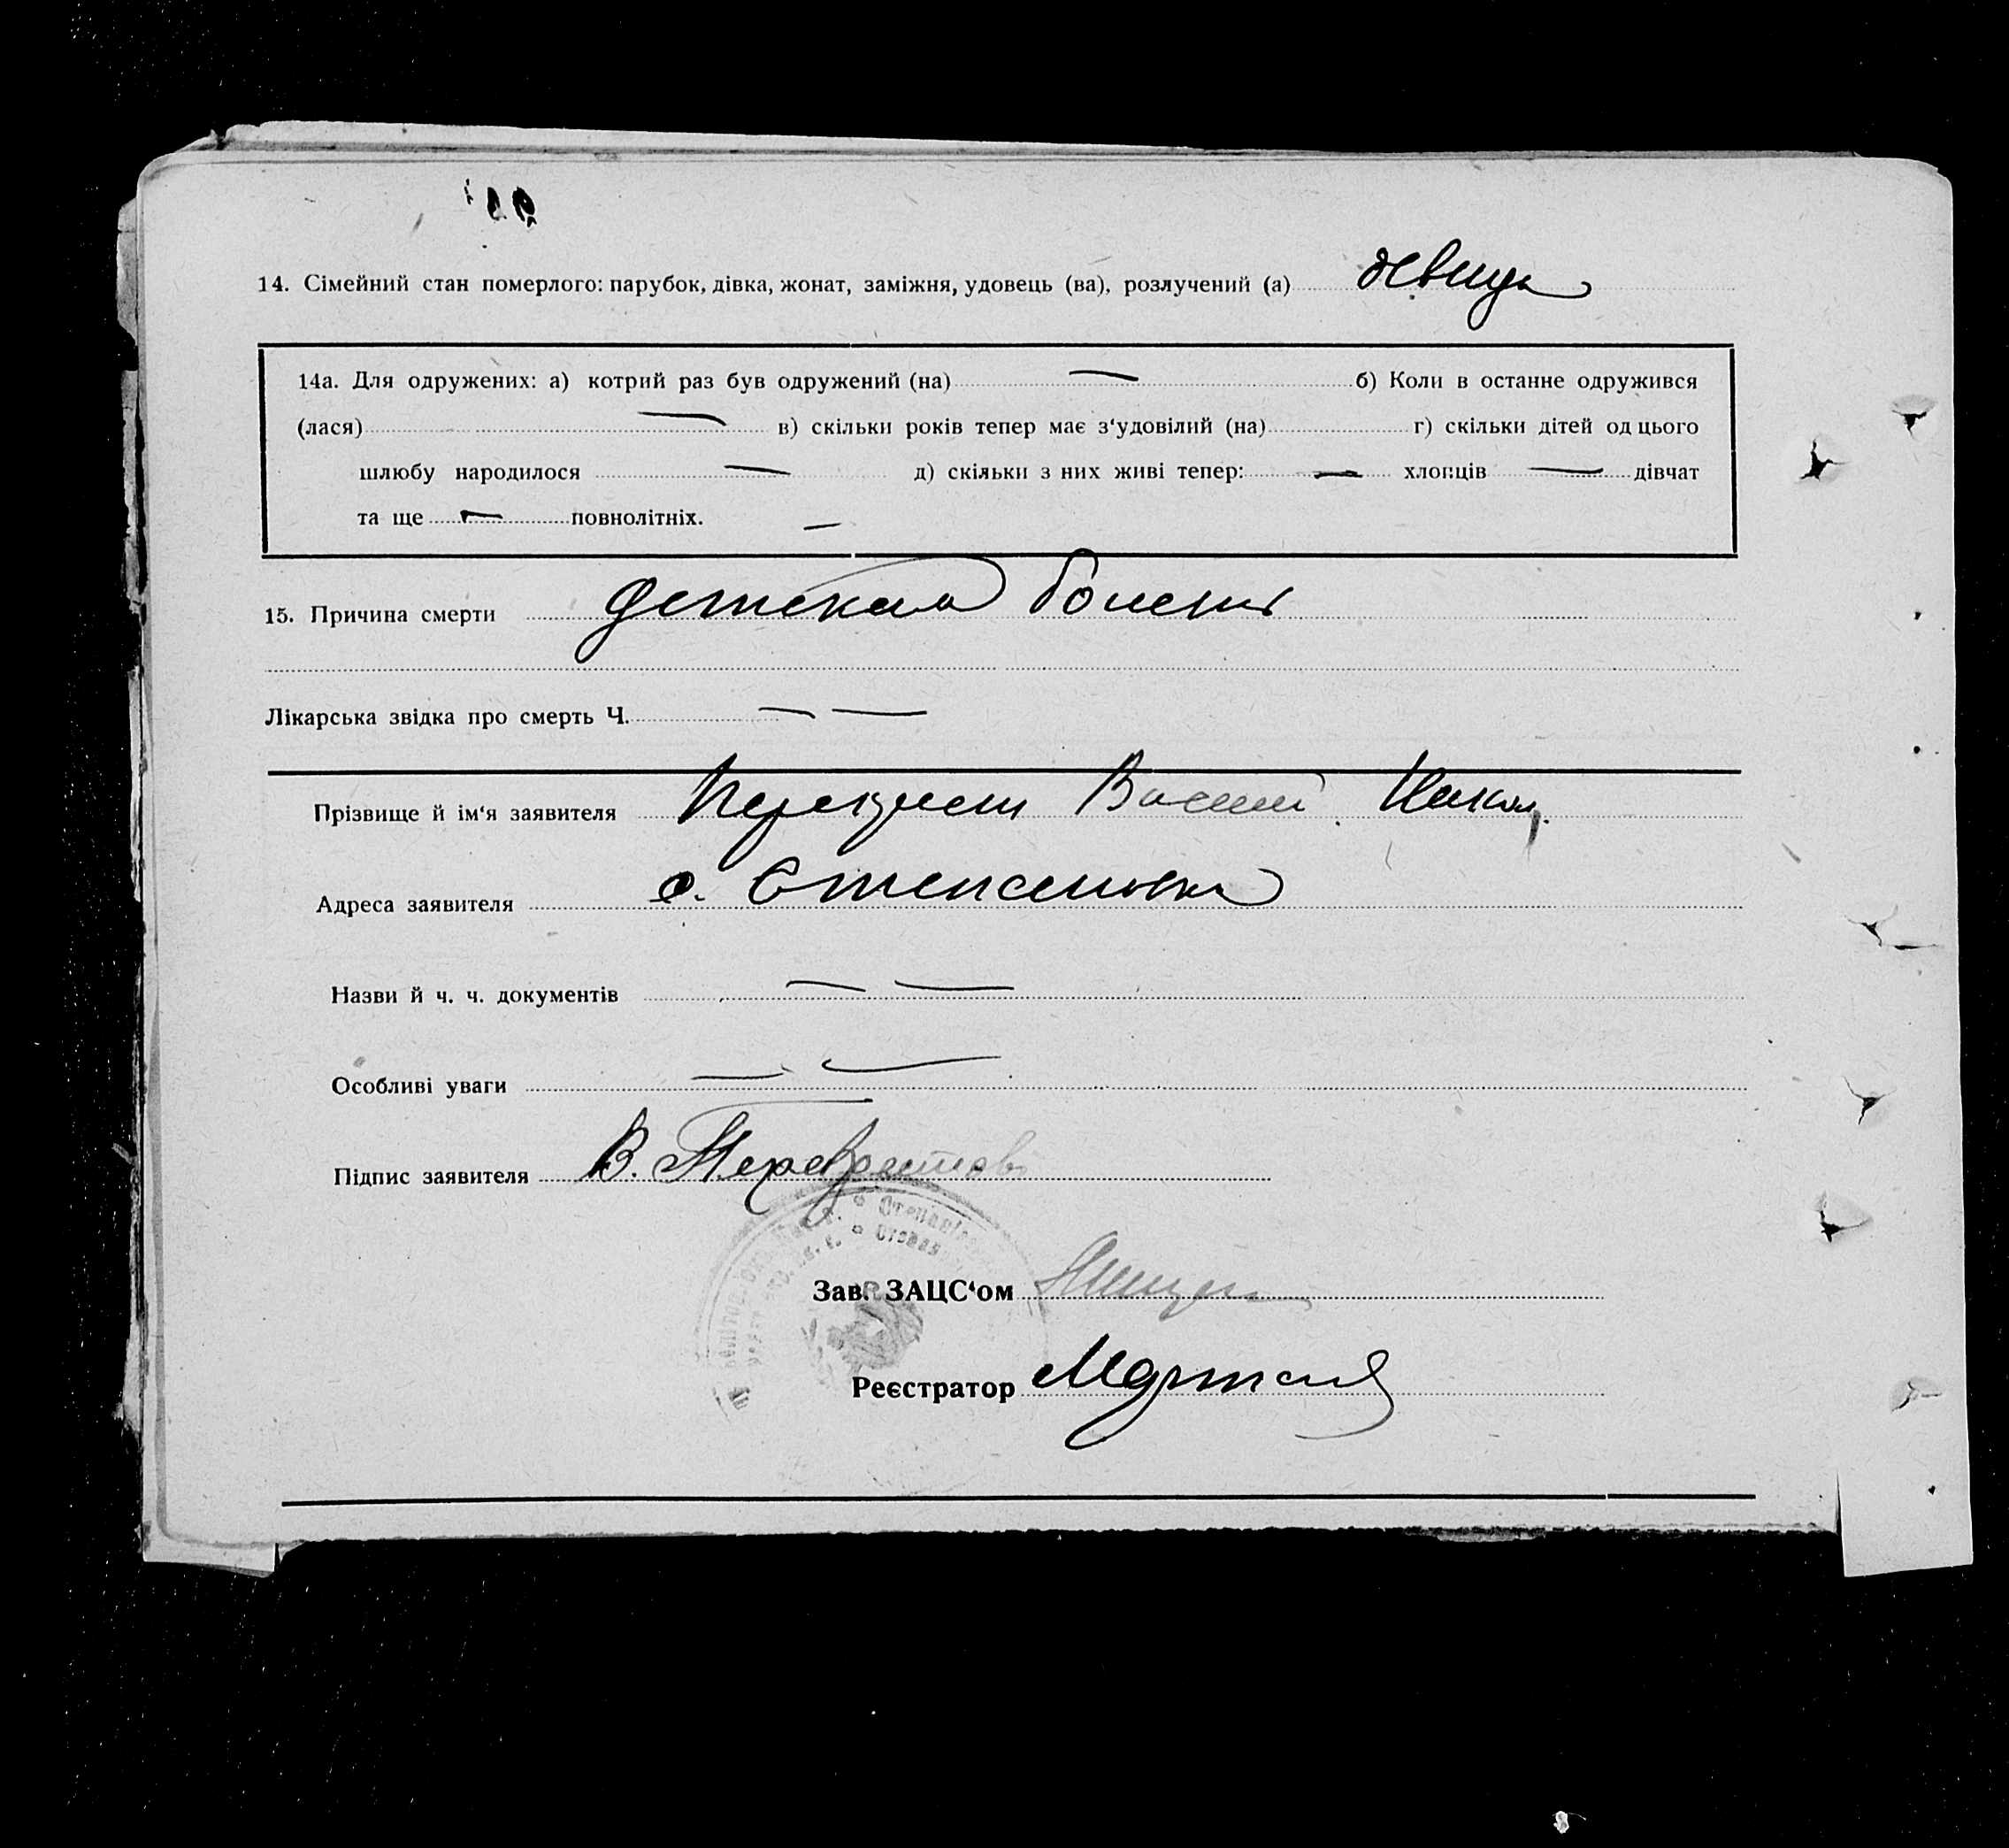 14. Сімейний стан померлого: парубок, дівка, жонат, заміжня, удовець (ва), розлучений (а) девица
14а. Для одружених: а) котрий раз був одружений (на) — б) Коли в останне одружився
(лася) — в) скільки років тепер має з‘удовілий (на) г) скільки дітей од цього
шлюбу народилося — д) скільки з них живі тепер: — хлопців — дівчат
та ще — повнолітніх. —
15. Причина смерти детская болезнь
Лікарська звідка про смерть Ч. — —
Прізвище й ім‘я заявителя Перекрест Васили. Никол.
Адреса заявителя с. Степановка
Назви й ч. ч. документів — —
Особливі уваги — —
Підпис заявителя В. Перекрестов
Зав. ЗАЦС‘ом
Реєстратор